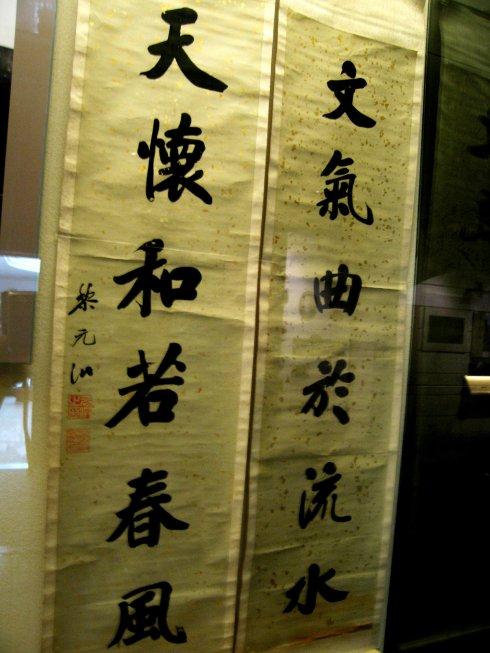 文氣曲於流水
天懷和若春風
黎元洪